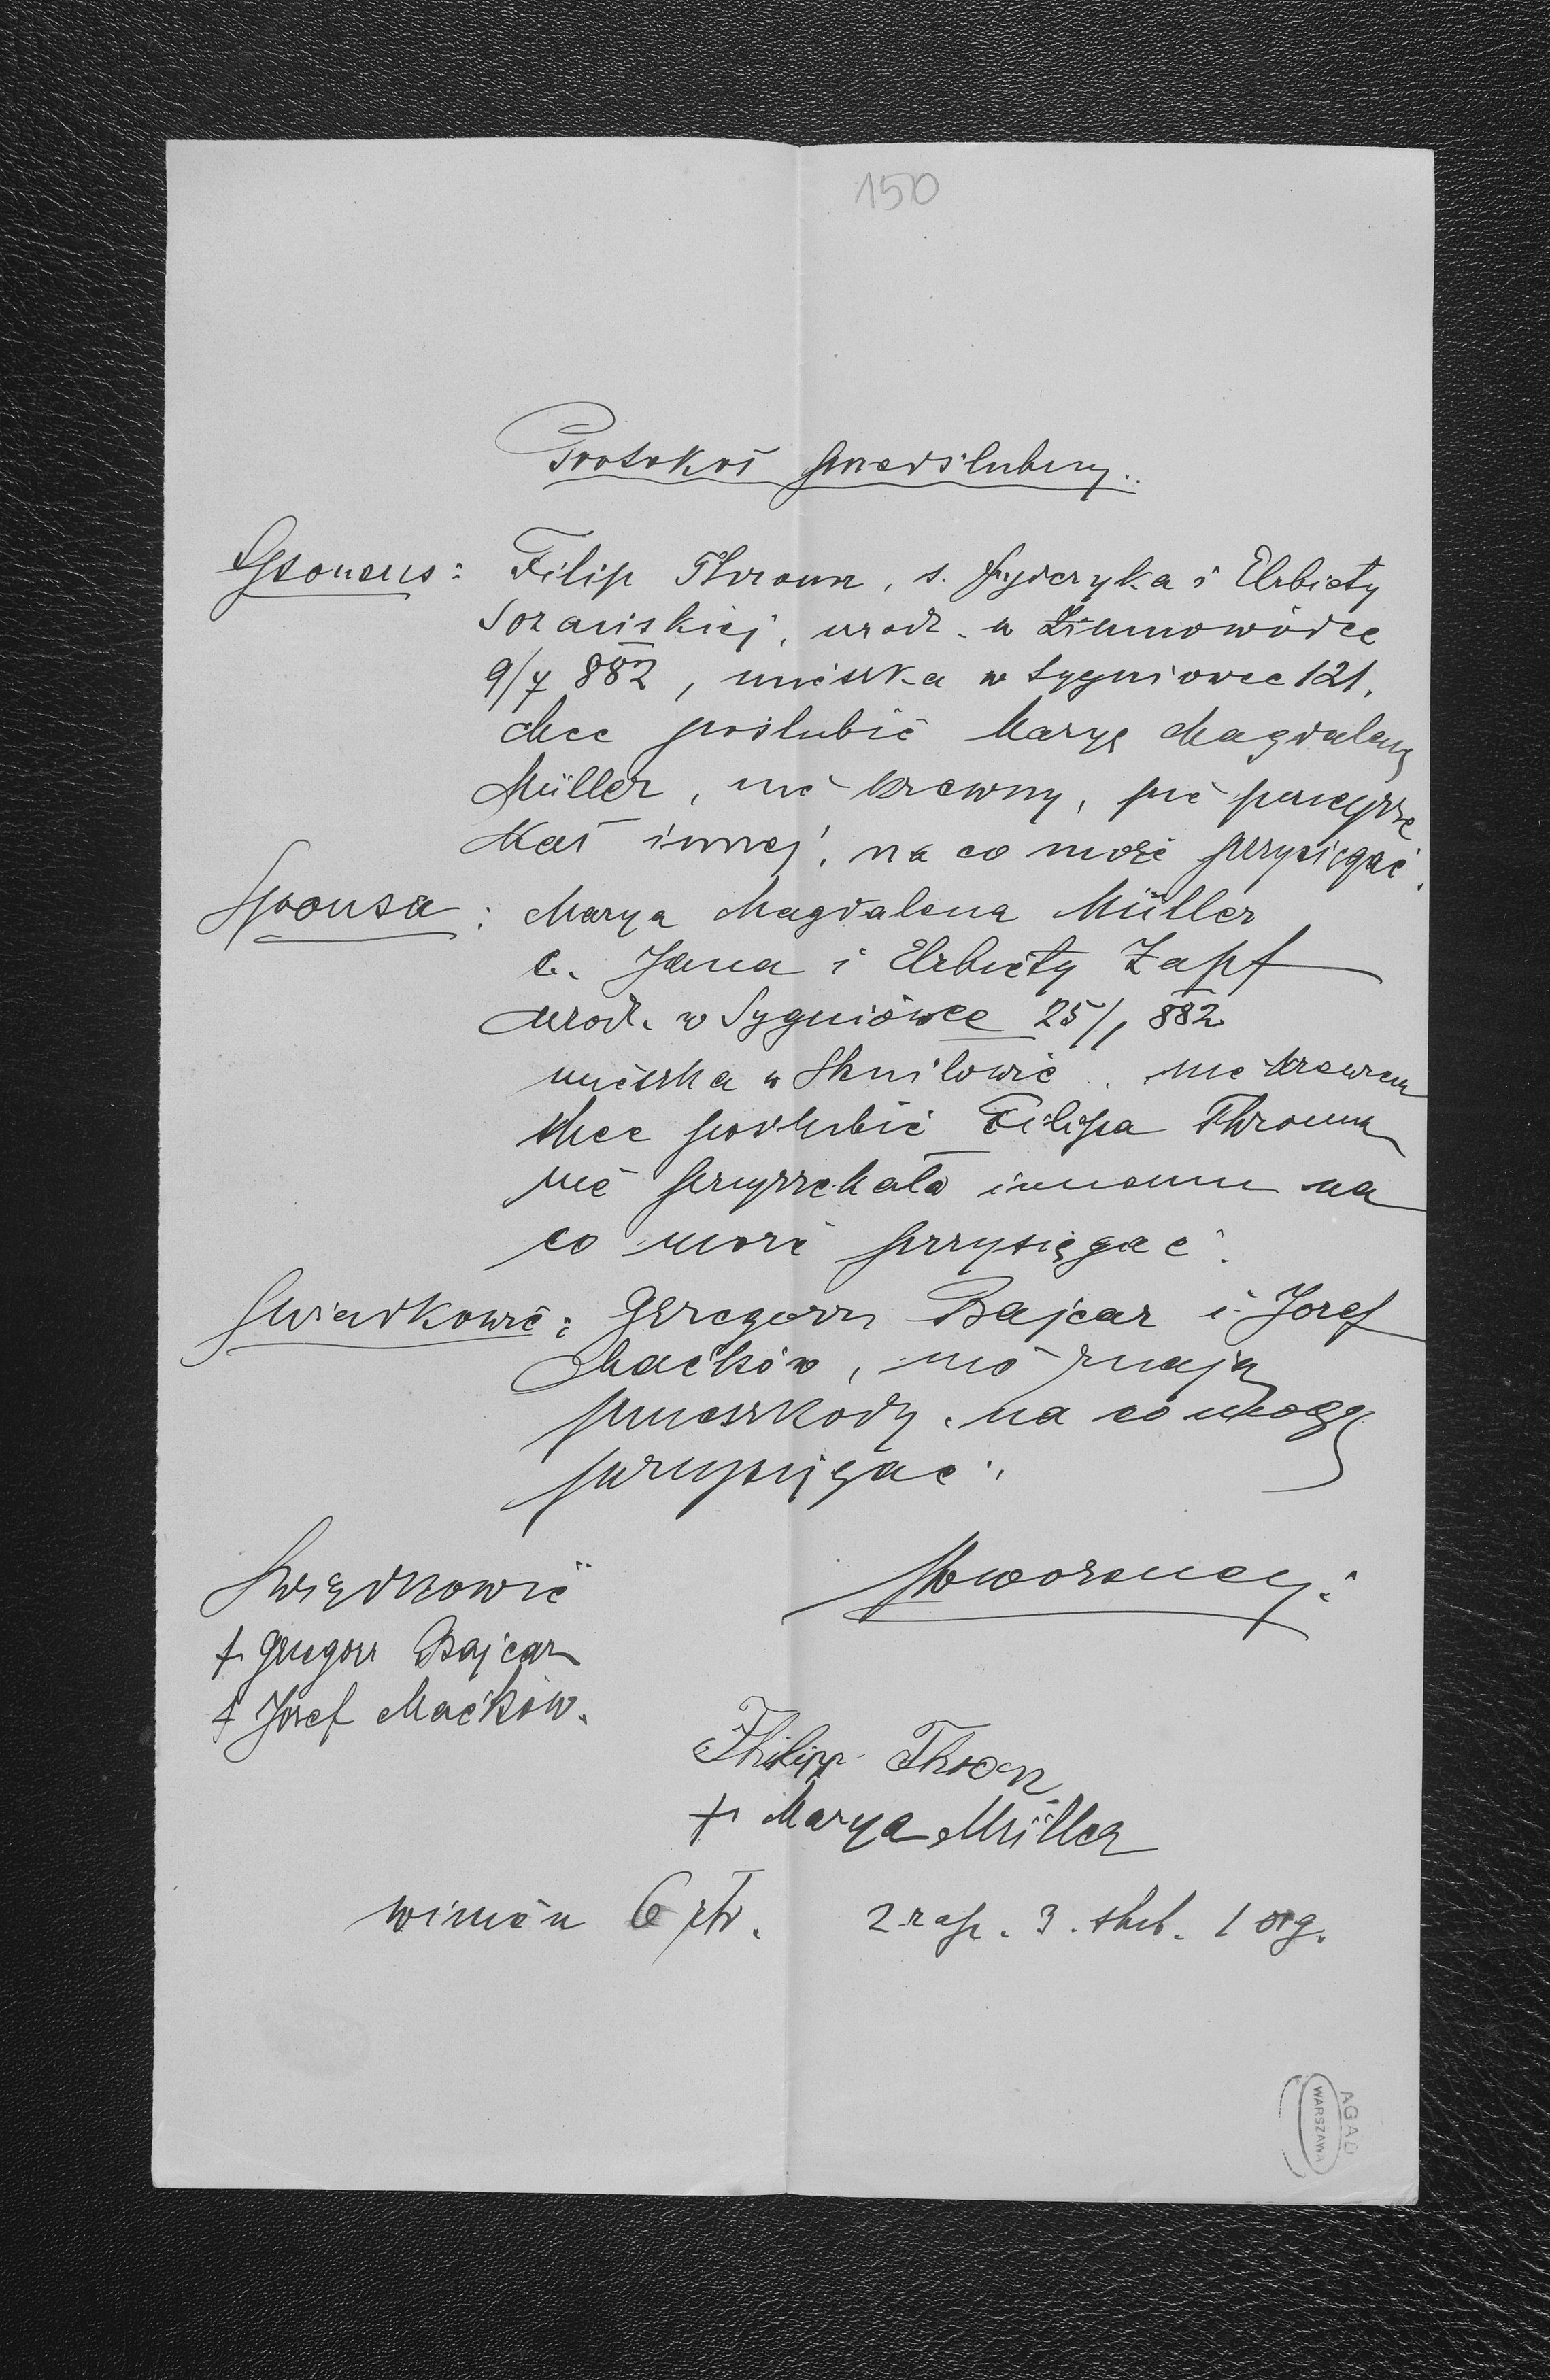 150
Protokoł przedślubny.
Sponsus: Filip Thronn, s. Fryderyka i Elżbiety
Sozańskiej, urodz. w Zimnowódce
9/7 882, mieszka w Sygniówce 121,
chce poślubić Maryę Magdalenę
Müller, nie krewny, nie przyrze
kał innej, na co może przysięgać.
Sponsa: Marya Magdalena Müller
c. Jana i Elżbiety Zapf
urodz. w Sygniówce 25/1 882
mieszka w Skniłowie, nie krewna
chce poślubić Filipa Thronna
nie przyrzekała innemu na
co może przysięgać.
Świadkowie: Grzegorz Bajcar i Józef
Maćków, nie znają
przeszkody, na co mogą
przysięgać.
Świadkowie
+ Grzegorz Bajcar
+ Józef Maćków.
Philipp Thron
+ Marya Müller
winien 6 złr. 2 zap. 3. ślub. 1 org.
AGAD
WARSZAWA